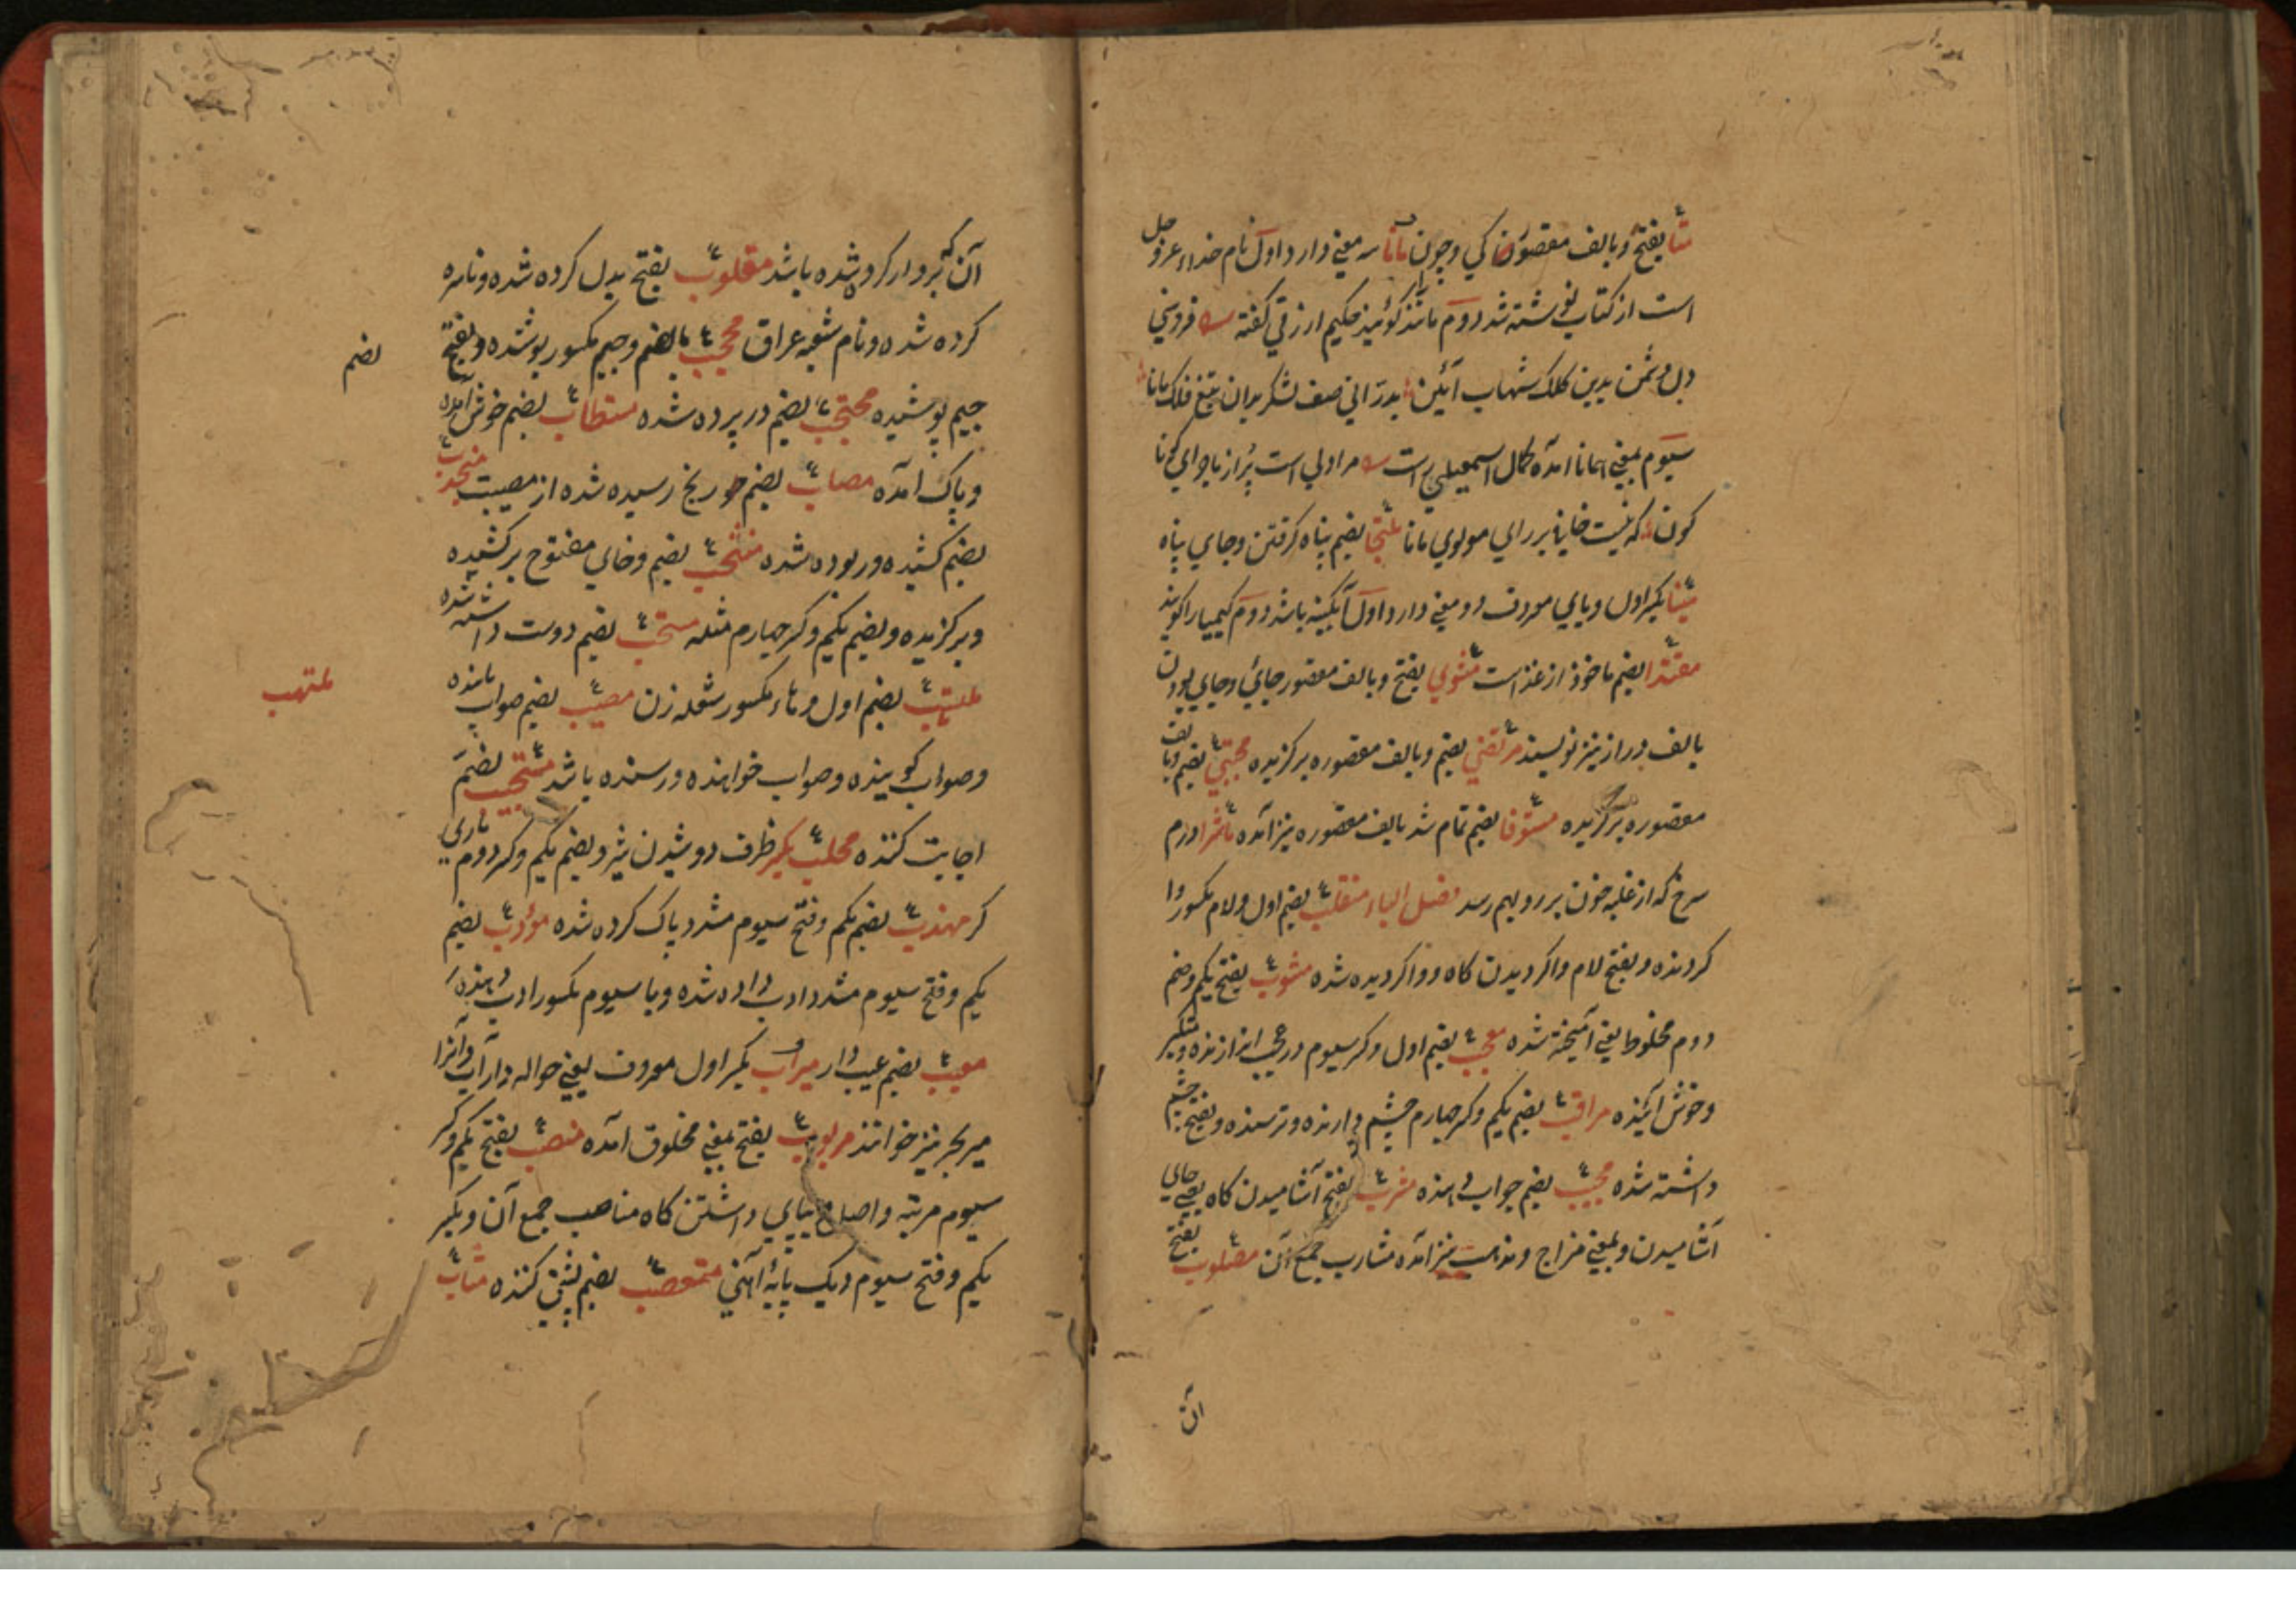 بفتح و بالف مقصوره کی و چون مانا سه معنی دارد اول نام خداء عز و جل
است از کتاب نوشته شد دوم مانند گویند حکیم ارزقی گفته
دل دشمن بدین کلک شهاب آئین بدرانی صف لشکر بدان تیغ فلک مانا
سیوم بمعنی همانا آمده کمال اسمعیل راست مرا دلی است پر از ماجرای گوناگون
که نیست خالی برای مولوی مانا ملتجا بضم پناه گرفتن و جای پناه
مینا بکسر اول و یای معروف دو معنی دارد اول آبگینه باشد دوم کیمیا را گویند
مقتدا بضم ماخوذ از غذاست مثوی بفتح و بالف مقصور جای و جای بودن
بالف دراز نیز نویسند مرتضی بضم و بالف مقصوره برگزیده مجتبی بضم و بالف
مقصوره برگزیده مستوفا بضم تمام شد بالف مقصوره نیز آمده ماشرا ورم
سرخ که از غلبه خون بر رو بهم رسد فصل الباء منقلب بضم اول و لام مکسور وا
گردنده و بفتح لام واگردیدن گاه و واگردیده شده مشوب بفتح یکم و ضم
دوم مخلوط یعنی آمیخته شده معجب بضم اول و کسر سیوم در عجب اندازنده و متکبر
و خوش آینده مراقب بضم یکم و کسر چهارم چشم دارنده و ترسنده و بفتح چشم
داشته شده مجیب بضم جواب دهنده مشرب بفتح آشامیدن گاه یعنی جای
آشامیدن و بمعنی مزاج و مذهب نیز آمده مشارب جمع آن مصلوب بفتح
آن
آن که بردار کرده شده باشد مقلوب بفتح بدل کرده شده و ناسره
کرده شده و نام شعبه عراق محجب بالضم و جیم مکسور پوشنده و بفتح
بضم
جیم پوشیده محتجب بضم در پرده شده مستطاب بضم خوش آمده
و پاک آمده مصاب بضم رسیده شده از مصیبت منجذب
بضم کشیده و ربوده شده منتخب بضم و خای مفتوح برکشیده
و برگزیده و بضم یکم و کسر چهارم مثله مستحب بضم دوست داشته شده
ملتهب بضم اول و هاء مکسور شعله زن مصیب بضم صواب یابنده
ملتهب
و صواب گوینده و صواب خواهنده و رسنده باشد مستجیب بضم
اجابت کننده محلب بکسر ظرف دوشیدن شیر و بضم یکم و کسر دوم یاری
گر مهذب بضم یکم و فتح سیوم مشدد پاک کرده شده مؤدب بضم
یکم و فتح سیوم مشدد ادب داده شده و با سیوم مکسور ادب دهنده
معیب بضم عیب دار میراب بکسر اول معروف یعنی حواله دار آب و آنرا
میر بحر نیز خوانند مربوب بفتح بمعنی مخلوق آمده منصب بفتح یکم و کسر
سیوم مرتبه و اصل و بپای داشتن گاه مناصب جمع آن و بکسر
یکم و فتح سیوم دیک پایه آهنی متعصب بضم پشتی کننده مثاب